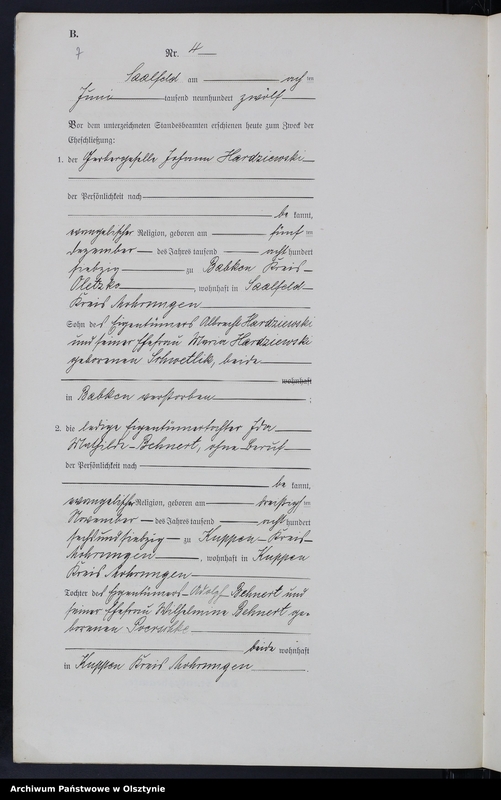 B.
7
Nr. 4
Saalfeld am acht ten
Juni tausend neunhundert zwölf
Vor dem unterzeichneten Standesbeamten erschienen heute zum Zweck der
Eheschließung:
1. der Gerbergeselle Johann Hardziewski
der Persönlichkeit nach
be kannt,
evangelischer Religion, geboren am fünf ten
Dezember des Jahres tausend acht hundert
siebzig zu Babken Kreis
Oletzko, wohnhaft in Saalfeld
Kreis Mohrungen
Sohn des Eigentümers Albrecht Hardziewski
und seiner Ehefrau Maria Hardziewski
geborenen beide
wohnhaft
in Babken verstorben ;
2. die ledige Eigentümertochter Ida
Mathilde Behnert, ohne Beruf
der Persönlichkeit nach
be kannt,
evangelischer Religion, geboren am dreissig ten
November des Jahres tausend acht hundert
sechsundsiebzig zu Kuppen Kreis
Mohrungen, wohnhaft in Kuppen
Kreis Mohrungen
Tochter des Eigentümers Adolf Behnert und
seiner Ehefrau Wilhelmine Behnert ge-
borenen
beide wohnhaft
in Kuppen Kreis Mohrungen.
Archiwum Państwowe w Olsztynie